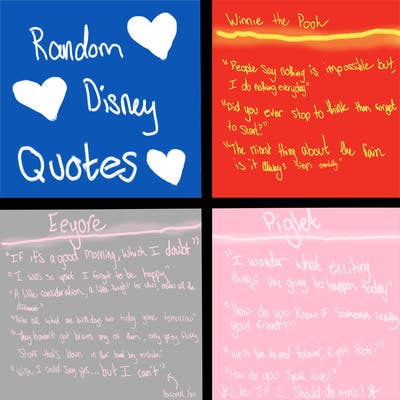 Random
Disney
Quotes
Winnie the Pooh
"People say nothing is impossible but,
I do nothing everyday"
"Did you ever stop to think then forget
to start?"
"The nicest thing about the rain
is it always stops eventually"
Eeyore
"If it's a good morning, which I doubt"
"I was so upset I forgot to be happy"
"A little consideration, a little thought for others, makes all the
difference"
"After all what are birthdays here today gone tomorrow"
"They haven't got brains any of them, only grey fluffy
stuff that's blown in their head by mistake"
"Wish I could say yes... but I can't"
Personal Fav
Piglet
"I wonder what exciting
things are going to happen today"
"How do you know if someone's really
your friend?"
"we'll be friend forever, right Pooh?"
"How do you spell love?"
*Like If I Should do more!*